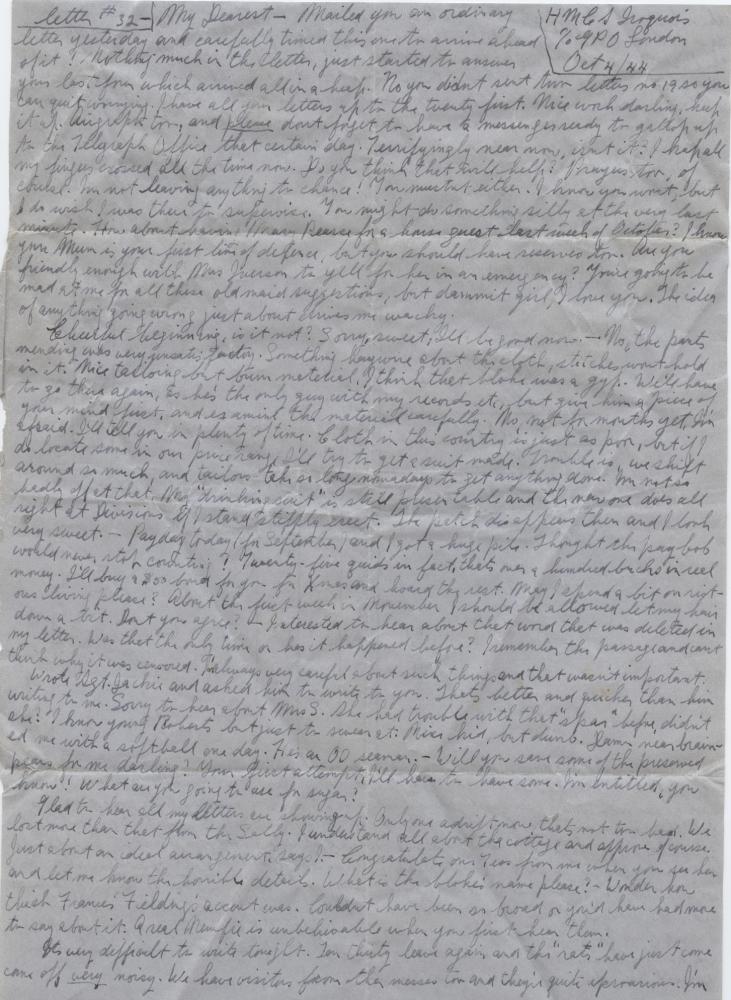 letter #32- My Dearest - Mailed you an ordinary
H M C S Iroquois
℅ G P O London
Oct 4/44
letter yesterday and carefully timed this one to arrive ahead
of it! Nothing much in the letter, just started to answer
your last four which arrived all in a heap. No you didn't send two letters no 19 so you
can quit worrying. I have all your letters up to the twenty first. Nice work darling, keep
it up. Airgraph too, and please don't forget to have a messenger ready to gallop up
to the Telegraph Office that certain day. Terrifyingly near now, isn't it? I keep all
my fingers crossed all the time now. Do you think that will help? Prayers too, of
course. I'm not leaving anything to chance! You mustn't either. I know you won't, but
I do wish I was there to supervise. You might do something silly at the very last
minute. How about having Mary Pearce for a house guest last week of October? I know
your Mum is your first line of defence, but you should have reserves too. Are you
friendly enough with Mrs Iverson to yell for her in an emergency? You're going to be
mad at me for all these old maid suggestions, but dammit girl, I love you. The idea
of anything going wrong just about drives me wacky.
Cheerful beginning, is it not? Sorry, sweet, I'll be good now. - No, the pants
mending was very unsatisfactory. Something haywire about the cloth, stitches won't hold
in it. Nice tailoring but bum material. I think that bloke was a gyp. We'll have
to go there again, as he's the only guy with my records etc, but give him a piece of
your mind first, and examine the material carefully. No, not for months yet, I'm
afraid. I'll tell you in plenty of time. Cloth in this country is just as poor, but if I
do locate some in our price range, I'll try to get a suit made. Trouble is, we shift
around so much, and tailors take so long nowadays to get anything done. I'm not so
badly off at that. My "drinking suit" is still presentable and the new one does all
right at Divisions if I stand stiffly erect. The patch disappears then and I look
very sweet. - Payday today (for September) and I got a huge pile. Thought the paybob
would never stop counting! Twenty-five quid in fact, that's over a hundred bucks in real
money. I'll buy a $00 bond for you for Xmas and hoard the rest. May I spend a bit on riot-
ous living please? About the first week in November I should be allowed let my hair
down a bit. Don't you agree? - Interested to hear about that word that was deleted in
my letter. Was that the only time or has it happened before? I remember the passage and can't
think why it was censored. I'm always very careful about such things and that wasn't important.
Wrote Sgt. Jackie and asked him to write to you. That's better and quicker than him
writing to me. Sorry to hear about Mrs S. She had trouble with that "spar" before, didn't
she? I know young Roberts but just to swear at. Nice kid, but dumb. Damn near brain-
ed me with a softball one day. He's an OD seaman. - Will you save some of the preserved
pears for me darling? Your first attempt, I'll have to have some. I'm entitled, you
know! What are you going to use for sugar?
Glad to hear all my letters are showing up. Only one adrift now, that's not too bad. We
lost more than that from the Sally. I understand all about the cottage and approve of course.
Just about an ideal arrangement, says I. - Congratulations Teas from me when you see her
and let me know the horrible details. What is the bloke's name please? - Wonder how
thick Frances Fielding's accent was. Couldn't have been so broad or you'd have had more
to say about it. A real is unbelievable when you first hear them.
It's very difficult to write tonight. Ten thirty leave again and the "rats" have just come
come off very noisy. We have visitors from other messes too and they're quite uproarious. I'm